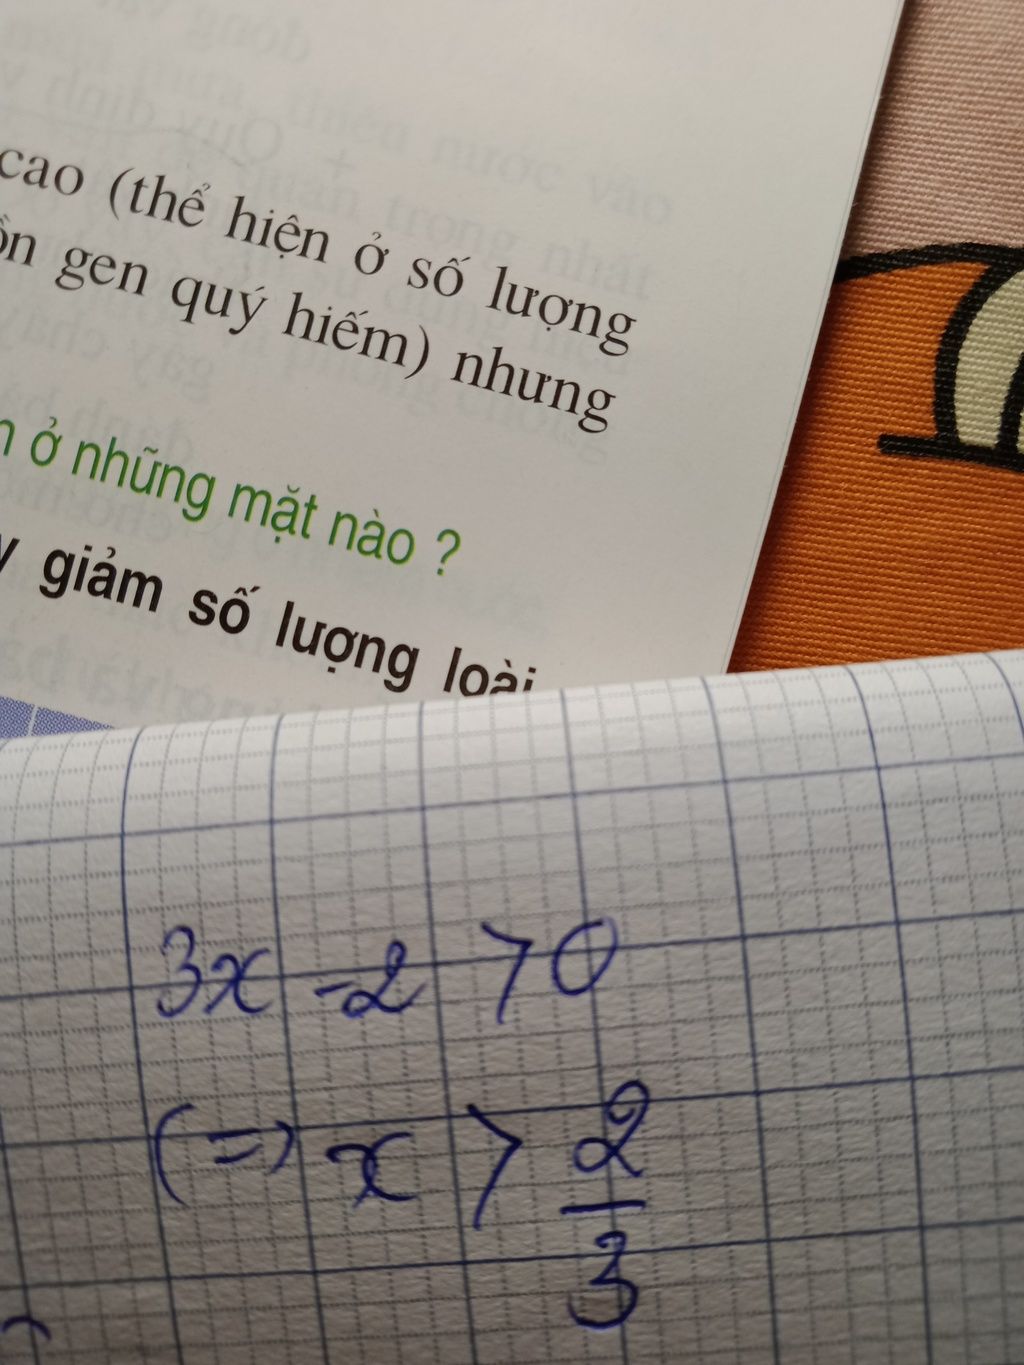 cao (thể hiện ở số lượng
gen quý hiếm) nhưng
ở những mặt nào ?
giảm số lượng loài
3x - 2 > 0
(=) x > 2/3